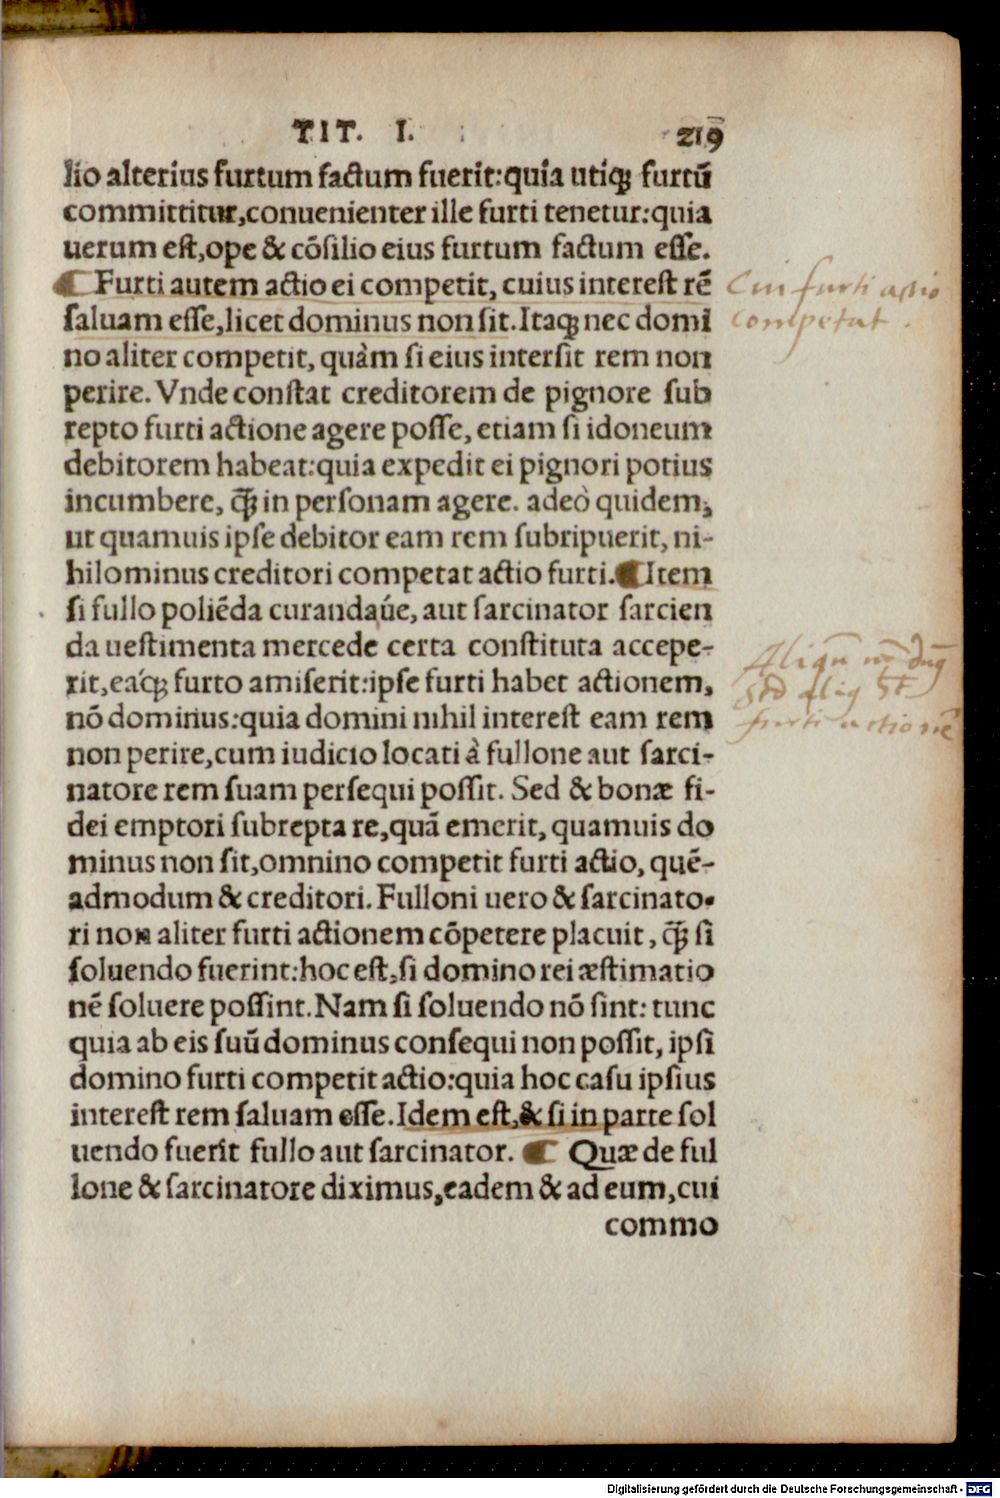 TIT. I. 219
lio alterius furtum factum fuerit:quia utiq; furtū
committitur,conuenienter ille furti tenetur:quia
uerum est,ope & cōsilio eius furtum factum esse.
¶ Furti autem actio ei competit, cuius interest rē
saluam esse,licet dominus non sit.Itaq; nec domi
no aliter competit, quàm si eius intersit rem non
perire. Vnde constat creditorem de pignore sub
repto furti actione agere posse, etiam si idoneum
debitorem habeat:quia expedit ei pignori potius
incumbere, q̃; in personam agere. adeò quidem,
ut quamuis ipse debitor eam rem subripuerit, ni-
hilominus creditori competat actio furti.¶Item
si fullo poliēda curandaúe, aut sarcinator sarcien
da uestimenta mercede certa constituta accepe-
rit,eáq; furto amiserit:ipse furti habet actionem,
nō dominus:quia domini nihil interest eam rem
non perire,cum iudicio locati à fullone aut sarci-
natore rem suam persequi possit. Sed & bonæ fi-
dei emptori subrepta re,quā emerit, quamuis do
minus non sit,omnino competit furti actio, quē-
admodum & creditori. Fulloni uero & sarcinato-
ri non aliter furti actionem cōpetere placuit, q̃; si
soluendo fuerint:hoc est,si domino rei æstimatio
nē soluere possint. Nam si soluendo nō sint: tunc
quia ab eis suū dominus consequi non possit, ipsi
domino furti competit actio:quia hoc casu ipsius
interest rem saluam esse.Idem est,& si in parte sol
uendo fuerit fullo aut sarcinator. ¶ Quæ de ful
lone & sarcinatore diximus,eadem & ad eum,cui
commo
Cui furti actio
competat.
furti actionē
Digitalisierung gefördert durch die Deutsche Forschungsgemeinschaft - DFG